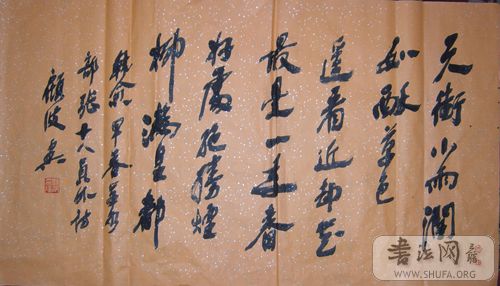 天街小雨潤
如酥草色
遥看近却无
最是一年春
好處绝勝煙
柳滿皇都
韓愈早春呈水
部張十八員外詩
顧波
書法网
WWW.SHUFA.ORG